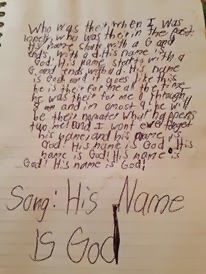 Who was their when I was
lonely, who was their in the past
His name start with a G and
ends with a d. His name is
God. His name starts with a
G and ends with a d. His name
is God and it goes like this
he is their for me all the time
he was their for me through
am and im almost 9, he will
be their no matter what happens
two me! and I wont ever forget
his name and his name is
God. His name is God. His
name is God! His name is
God! His name is God!
Song: His Name
Is God